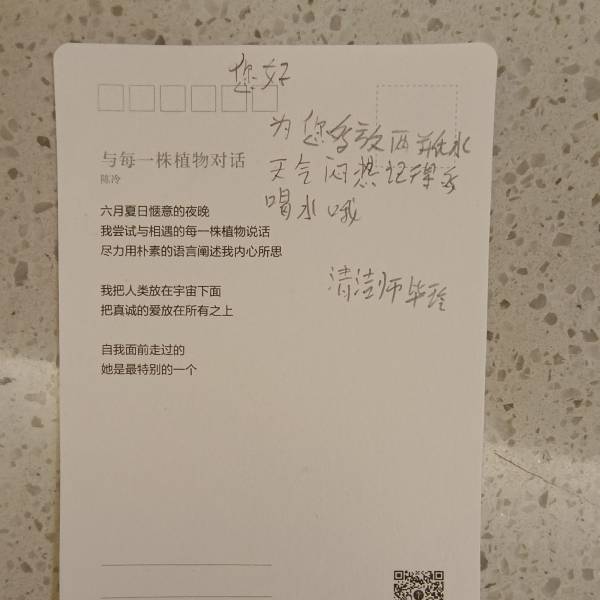 您好
为您多放两瓶水
天气闷热记得多
喝水哦
清洁师毕玲
与每一株植物对话
陈冷
六月夏日惬意的夜晚
我尝试与相遇的每一株植物说话
尽力用朴素的语言阐述我内心所思
我把人类放在宇宙下面
把真诚的爱放在所有之上
自我面前走过的
她是最特别的一个